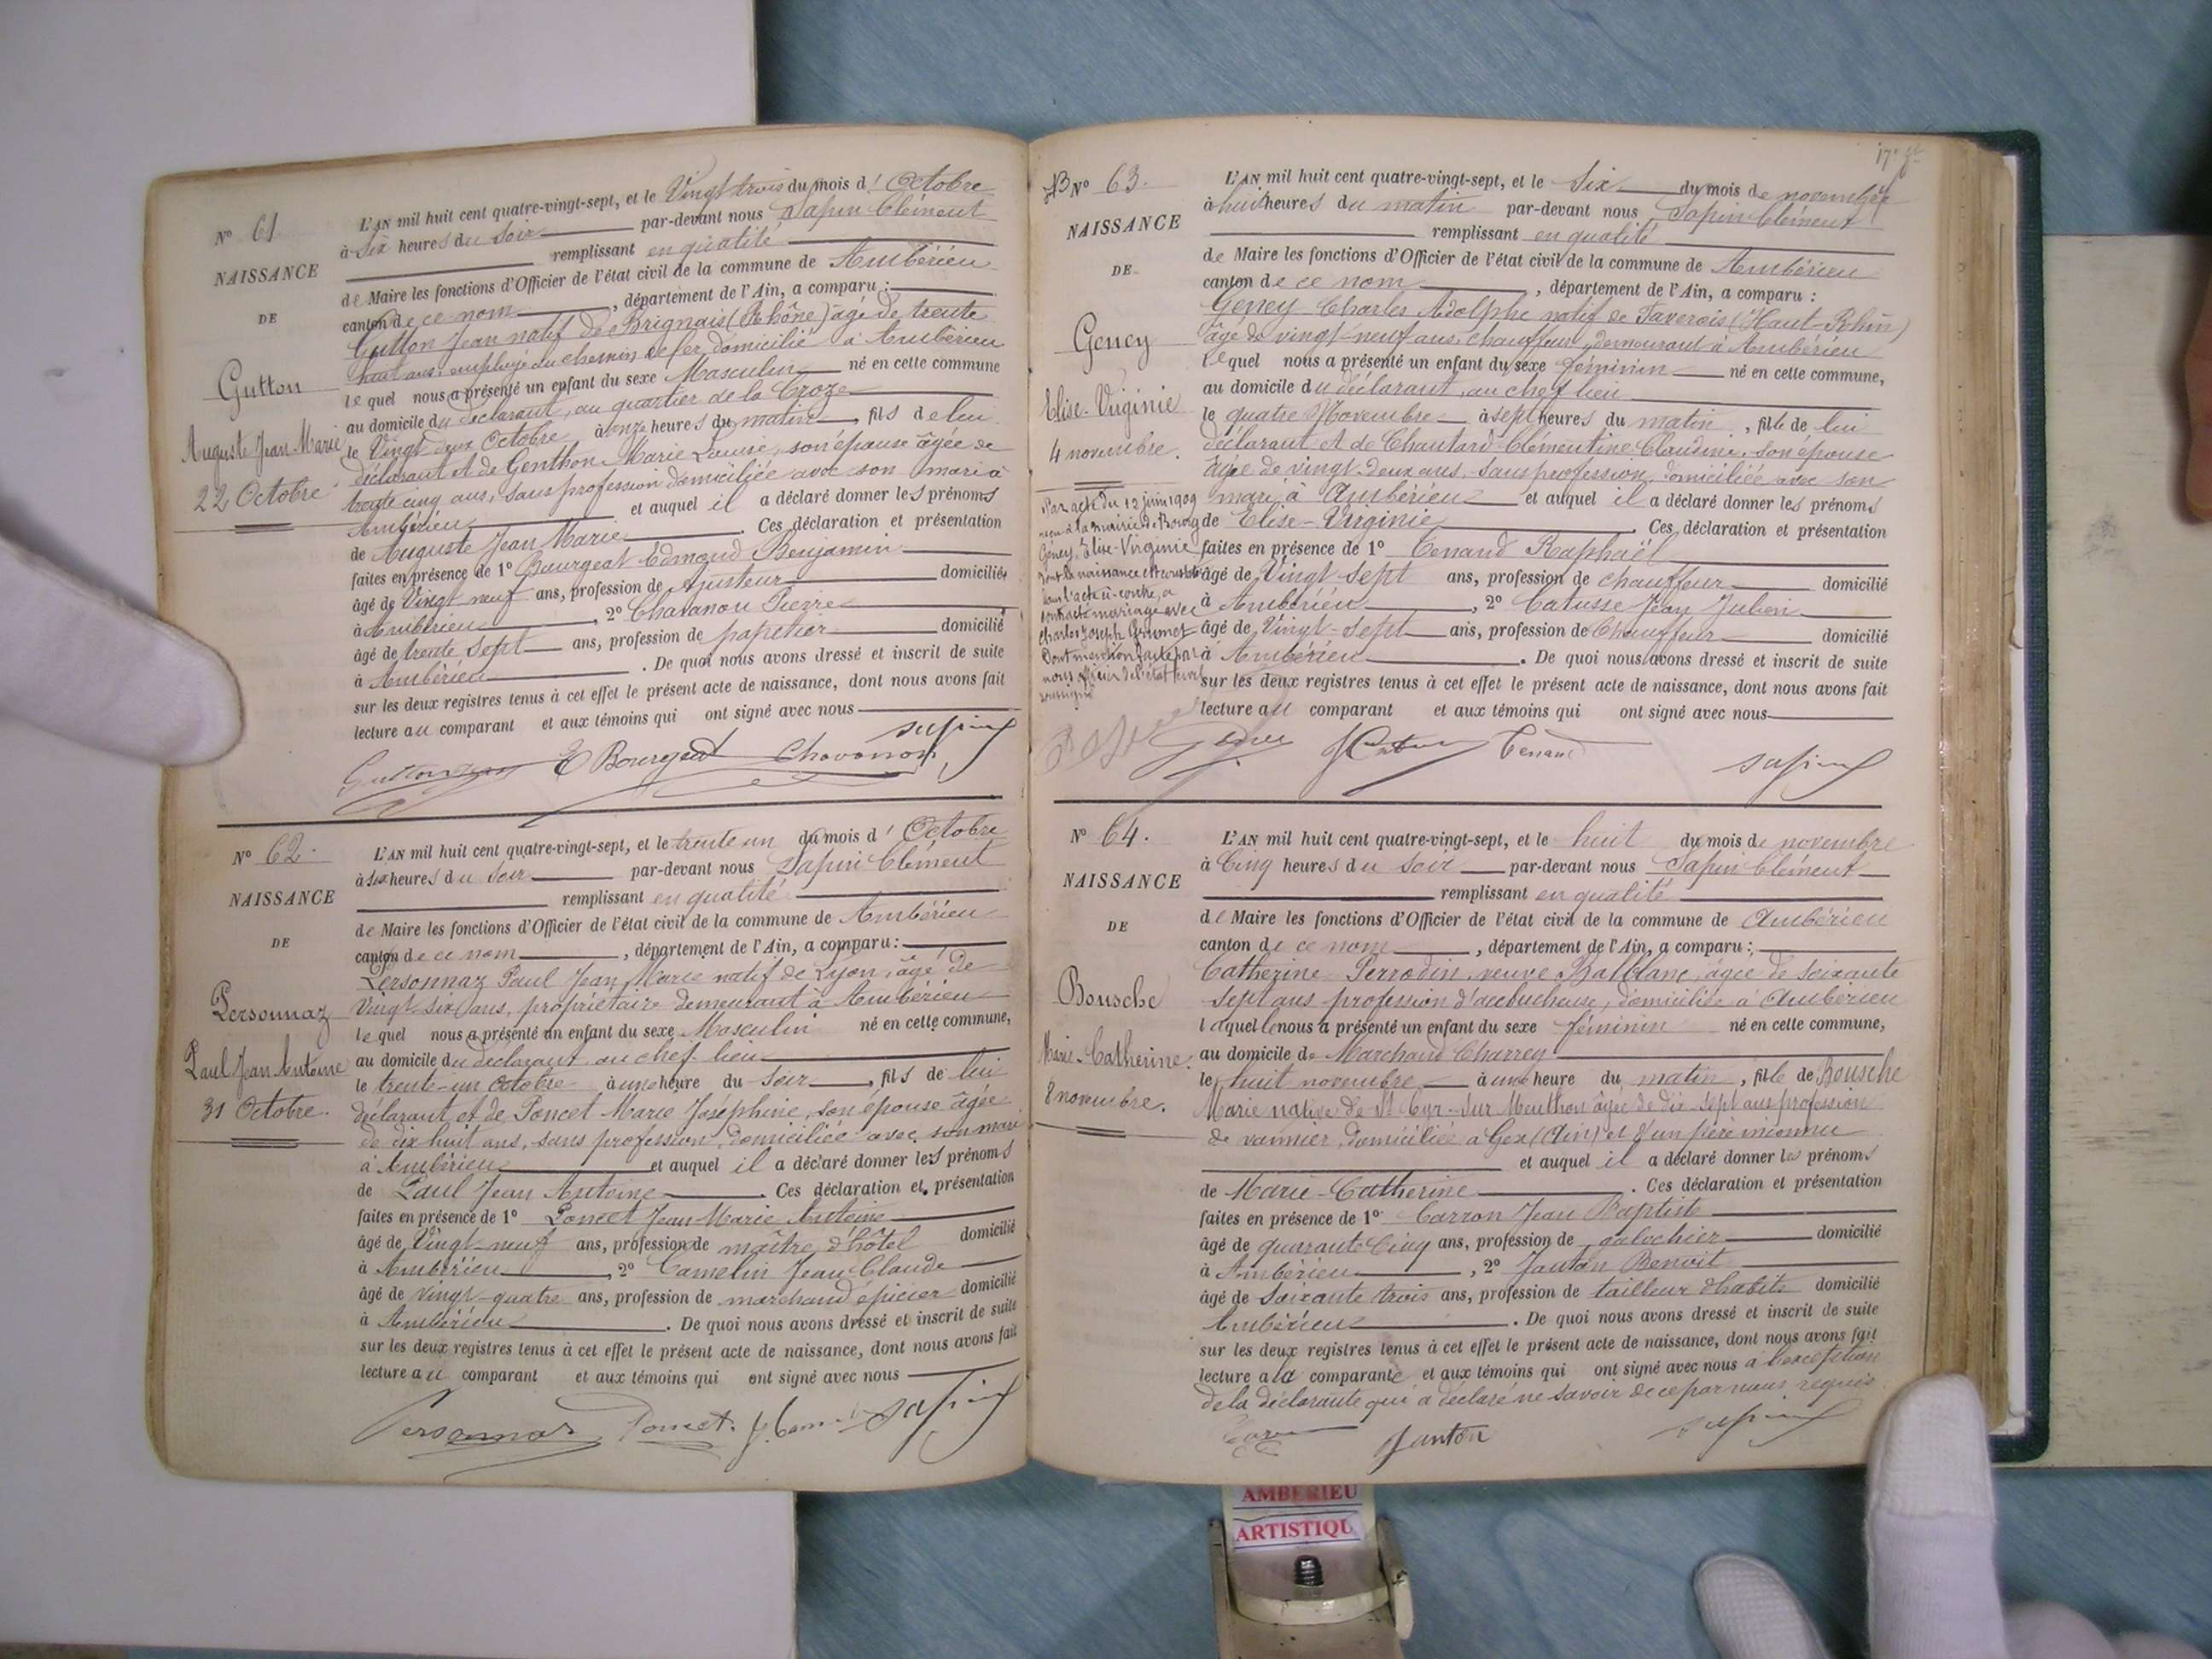 Nº 61.
NAISSANCE
DE
Gutton
Auguste Jean Marie
22 Octobre
L'AN mil huit cent quatre-vingt-sept, et le Vingt trois du mois d' Octobre
à Six heures du Soir par-devant nous Sapin Clément
remplissant en qualité
de Maire les fonctions d'Officier de l'état civil de la commune de Ambérieu
canton de ce nom, département de l'Ain, a comparu :
Gutton Jean natif de Brignais (Rhône) âgé de trente
huit ans, employé du chemin de fer, domicilié à Ambérieu
lequel nous a présenté un enfant du sexe Masculin né en cette commune
au domicile du déclarant, au quartier de la Croze
le Vingt deux Octobre à onze heures du matin, fils de lui
déclarant et de Genthon Marie Louise, son épouse âgée de
trente cinq ans, sans profession domiciliée avec son mari à
Ambérieu et auquel il a déclaré donner les prénoms
de Auguste Jean Marie. Ces déclaration et présentation
faites en présence de 1º Bourgeat Edmond Benjamin
âgé de Vingt neuf ans, profession de ajusteur domicilié
à Ambérieu, 2º Chavanon Pierre
âgé de trente sept ans, profession de papetier domicilié
à Ambérieu. De quoi nous avons dressé et inscrit de suite
sur les deux registres tenus à cet effet le présent acte de naissance, dont nous avons fait
lecture au comparant et aux témoins qui ont signé avec nous
Sapin
E Bourgeat Chavanon
Nº 62.
NAISSANCE
DE
Personnaz
Paul Jean Antoine
31 Octobre.
L'AN mil huit cent quatre-vingt-sept, et le trente un du mois d' Octobre
à six heures du Soir par-devant nous Sapin Clément
remplissant en qualité
de Maire les fonctions d'Officier de l'état civil de la commune de Ambérieu
canton de ce nom, département de l'Ain, a comparu :
Personnaz Paul Jean Marie natif de Lyon, âgé de
Vingt six ans, propriétaire demeurant à Ambérieu
lequel nous a présenté un enfant du sexe Masculin né en cette commune,
au domicile du déclarant au chef-lieu
le trente-un Octobre à une heure du Soir, fils de lui
déclarant et de Poncet Marie Joséphine, son épouse âgée
de dix huit ans, sans profession, domiciliée avec son mari
à Ambérieu et auquel il a déclaré donner les prénoms
de Paul Jean Antoine. Ces déclaration et présentation
faites en présence de 1º Poncet Jean Marie Antoine
âgé de Vingt-neuf ans, profession de maître d'hôtel domicilié
à Ambérieu, 2º Camelin Jean Claude
âgé de vingt-quatre ans, profession de marchand épicier domicilié
à Ambérieu. De quoi nous avons dressé et inscrit de suite
sur les deux registres tenus à cet effet le présent acte de naissance, dont nous avons fait
lecture au comparant et aux témoins qui ont signé avec nous
Personnaz Poncet. Sapin
Nº 63.
NAISSANCE
DE
Geney
Elise-Virginie
4 novembre.
Par acte du 12 juin 1909
reçu à la mairie de Bourg
Geney, Elise-Virginie
dont la naissance est constatée
dans l'acte ci-contre, a
contracté mariage avec
Charles Joseph
Dont mention faite par
nous officier de l'état civil
soussigné
L'AN mil huit cent quatre-vingt-sept, et le Six du mois de novembre
à huit heures du matin par-devant nous Sapin Clément
remplissant en qualité
de Maire les fonctions d'Officier de l'état civil de la commune de Ambérieu
canton de ce nom, département de l'Ain, a comparu :
Geney Charles Adolphe natif de Taverois (Haut-Rhin)
âgé de vingt-neuf ans, chauffeur, demeurant à Ambérieu
lequel nous a présenté un enfant du sexe féminin né en cette commune,
au domicile du déclarant, au chef lieu
le quatre Novembre à sept heures du matin, fille de lui
déclarant et de Chautard Clémentine Claudine, son épouse
âgée de vingt-deux ans, sans profession, domiciliée avec son
mari à Ambérieu et auquel il a déclaré donner les prénoms
de Elise-Virginie. Ces déclaration et présentation
faites en présence de 1º Tenand Raphaël
âgé de Vingt sept ans, profession de chauffeur domicilié
à Ambérieu, 2º Catusse Jean Julien
âgé de Vingt-sept ans, profession de Chauffeur domicilié
à Ambérieu. De quoi nous avons dressé et inscrit de suite
sur les deux registres tenus à cet effet le présent acte de naissance, dont nous avons fait
lecture au comparant et aux témoins qui ont signé avec nous
Geney Tenand Sapin
Nº 64.
NAISSANCE
DE
Bousche
Marie-Catherine.
8 novembre.
L'AN mil huit cent quatre-vingt-sept, et le huit du mois de novembre
à Cinq heures du Soir par-devant nous Sapin Clément
remplissant en qualité
de Maire les fonctions d'Officier de l'état civil de la commune de Ambérieu
canton de ce nom, département de l'Ain, a comparu :
Catherine Perrodin, veuve Balblanc, âgée de Soixante
Sept ans profession d'accoucheuse, domiciliée à Ambérieu
laquelle nous a présenté un enfant du sexe féminin né en cette commune,
au domicile de Marchand Charrey
le huit novembre à une heure du matin, fille de Bousche
Marie native de St Cyr-sur Menthon âgée de dix-sept ans profession
de vannier, domiciliée à Gex (Ain) et d'un père inconnu
et auquel il a déclaré donner les prénoms
de Marie-Catherine. Ces déclaration et présentation
faites en présence de 1º Carron Jean Baptiste
âgé de quarante Cinq ans, profession de galochier domicilié
à Ambérieu, 2º Janton Benoit
âgé de Soixante trois ans, profession de tailleur d'habits domicilié
Ambérieu. De quoi nous avons dressé et inscrit de suite
sur les deux registres tenus à cet effet le présent acte de naissance, dont nous avons fait
lecture à la comparante et aux témoins qui ont signé avec nous à l'exception
de la déclarante qui a déclaré ne savoir de ce par nous requis
Janton Sapin
AMBERIEU
ARTISTIQU